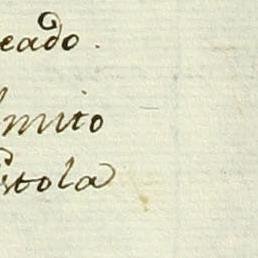 eado.
mito
stola